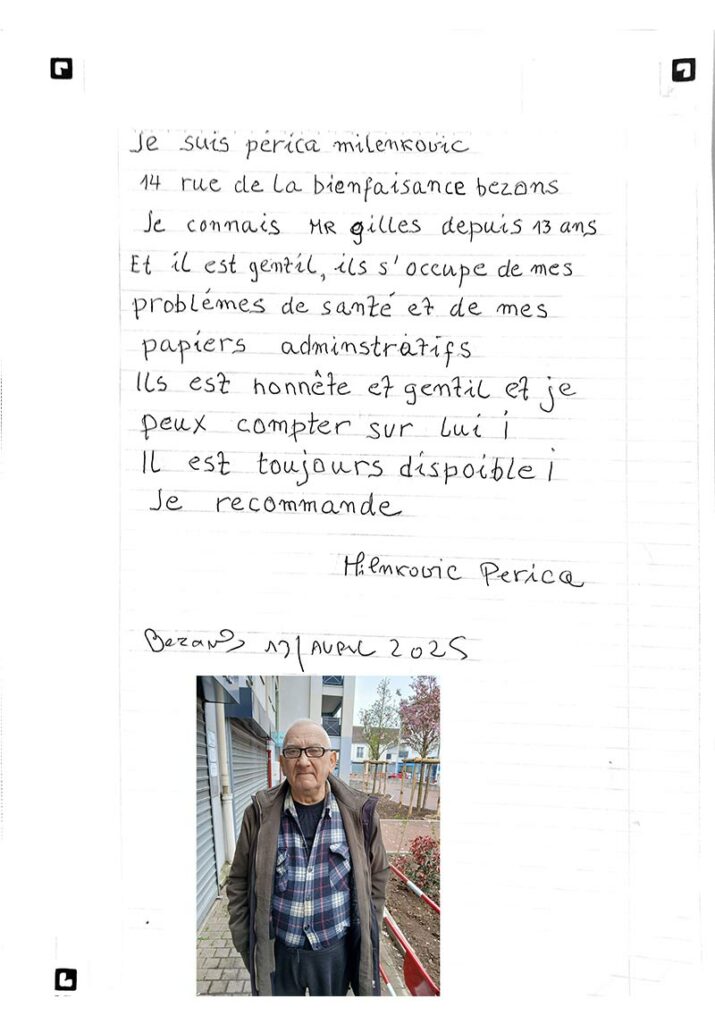 Je suis périca milenkovic
14 rue de la bienfaisance bezons
Je connais MR gilles depuis 13 ans
Et il est gentil, ils s'occupe de mes
problémes de santé et de mes
papiers adminstràtifs
Ils est honnête et gentil et je
peux compter sur lui ¡
Il est toujours dispoible ¡
Je recommande
Milenkovic Perica
Bezons 17/AVRIL 2025